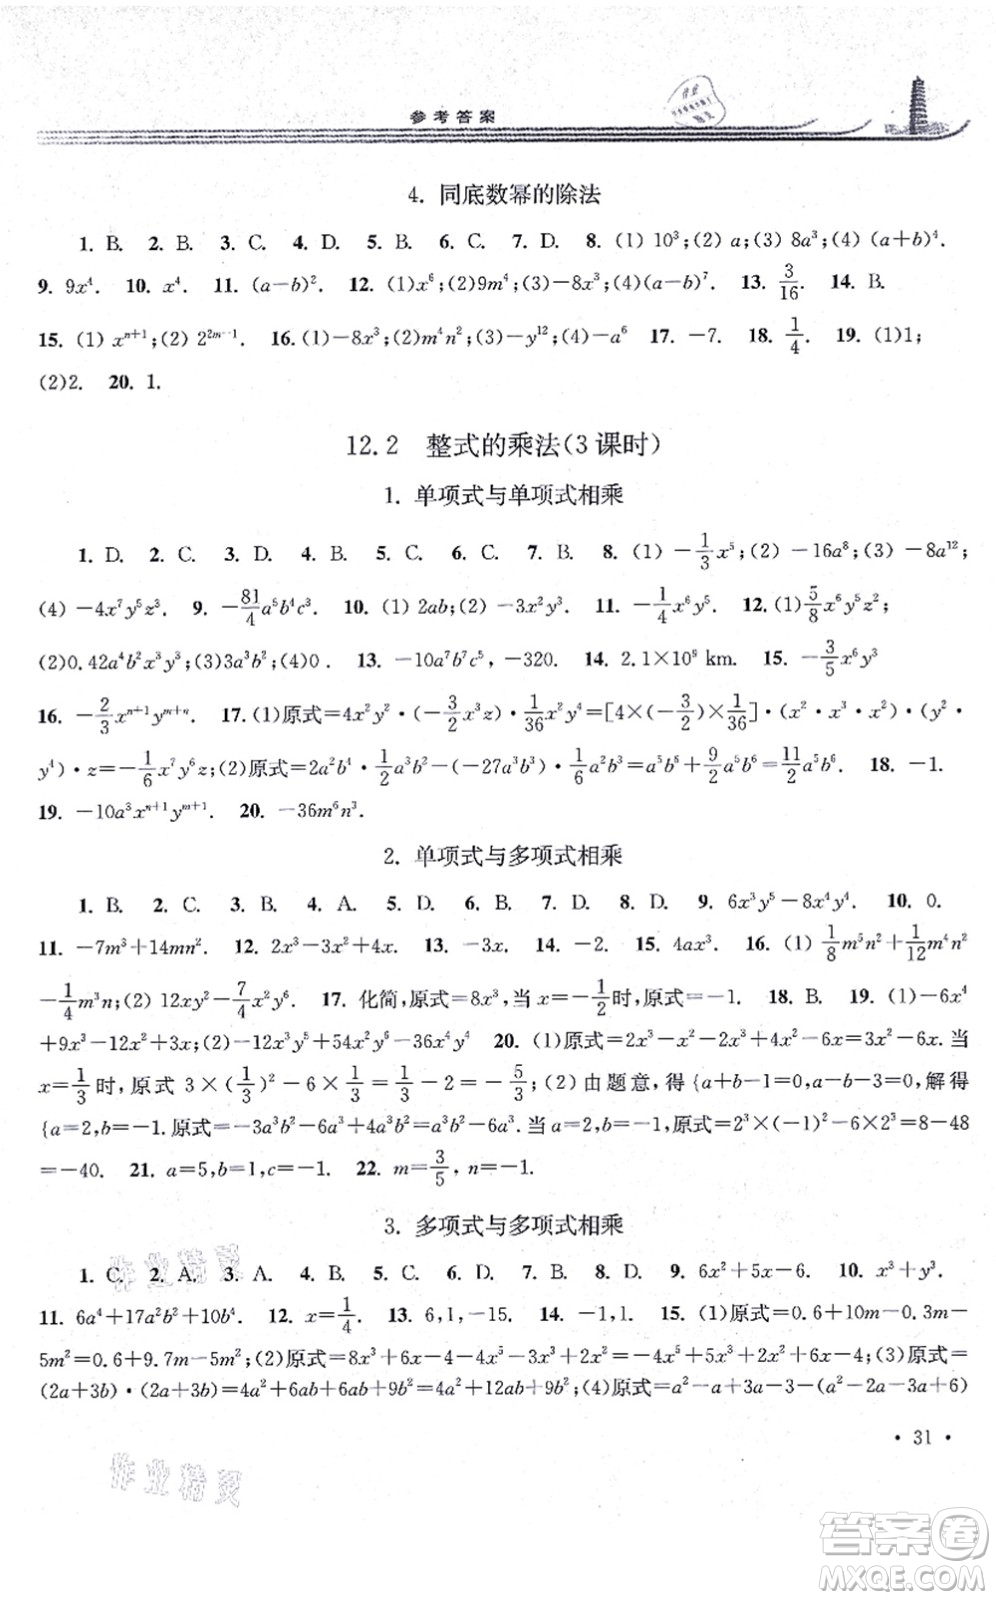 参考答案
4. 同底数幂的除法
1. B. 2. B. 3. C. 4. D. 5. B. 6. C. 7. D. 8. (1) 10³;(2) a;(3) 8a³;(4) (a+b)⁴.
9. 9x⁴. 10. x⁴. 11. (a-b)². 12. (1)x⁶;(2)9m⁴;(3)-8x³;(4)(a-b)⁷. 13. 3/16. 14. B.
15. (1) xⁿ⁺¹;(2) 2²ᵐ⁻¹. 16. (1)-8x³;(2)m⁴n²;(3)-y¹²;(4)-a⁶ 17. -7. 18. 1/4. 19. (1)1;
(2)2. 20. 1.
12.2 整式的乘法(3课时)
1. 单项式与单项式相乘
1. D. 2. C. 3. D. 4. B. 5. C. 6. C. 7. B. 8. (1) -1/3x⁵;(2) -16a⁸;(3) -8a¹²;
(4) -4x⁷y⁵z³. 9. -81/4a⁵b⁴c³. 10. (1) 2ab;(2) -3x²y³. 11. -1/4x⁶y⁵. 12. (1)5/8x⁶y⁵z²;
(2)0.42a⁴b²x³y³;(3)3a³b²;(4)0. 13. -10a⁷b⁷c⁵,-320. 14. 2.1×10⁹ km. 15. -3/5x⁶y³
16. -2/3xⁿ⁺¹yᵐ⁺ⁿ. 17. (1)原式=4x²y²·(-3/2x³z)·1/36x²y⁴=[4×(-3/2)×1/36]·(x²·x³·x²)·(y²·
y⁴)·z=-1/6x⁷y⁶z;(2)原式=2a²b⁴·1/2a³b²-(-27a³b³)·1/6a²b³=a⁵b⁶+9/2a⁵b⁶=11/2a⁵b⁶. 18. -1.
19. -10a³xⁿ⁺¹yᵐ⁺¹. 20. -36m⁶n³.
2. 单项式与多项式相乘
1. B. 2. C. 3. D. 4. A. 5. D. 6. B. 7. D. 8. D. 9. 6x³y⁵-8x⁴y⁴. 10. 0.
11. -7m³+14mn². 12. 2x³-3x²+4x. 13. -3x. 14. -2. 15. 4ax³. 16. (1) 1/8m⁵n²+1/12m⁴n²
-1/4m³n;(2) 12xy²-7/4x²y⁶. 17. 化简,原式=8x³,当x=-1/2时,原式=-1. 18. B. 19. (1)-6x⁴
+9x³-12x²+3x;(2)-12x³y⁵+54x²y⁶-36x⁴y⁴ 20. (1)原式=2x³-x²-2x³+4x²-6x=3x²-6x.当
x=1/3时,原式 3×(1/3)²-6×1/3=1/3-2=-5/3;(2)由题意,得{a+b-1=0,a-b-3=0,解得
{a=2,b=-1.原式=-3a³b²-6a³+4a³b²=a³b²-6a³.当a=2,b=-1时,原式=2³×(-1)²-6×2³=8-48
=-40. 21. a=5,b=1,c=-1. 22. m=3/5,n=-1.
3. 多项式与多项式相乘
1. C. 2. A. 3. A. 4. B. 5. C. 6. D. 7. D. 8. D. 9. 6x²+5x-6. 10. x³+y³.
11. 6a⁴+17a²b²+10b⁴. 12. x=1/4. 13. 6,1,-15. 14. -1,1. 15. (1)原式=0.6+10m-0.3m-
5m²=0.6+9.7m-5m²;(2)原式=8x³+6x-4-4x⁵-3x³+2x²=-4x⁵+5x³+2x²+6x-4;(3)原式=
(2a+3b)·(2a+3b)=4a²+6ab+6ab+9b²=4a²+12ab+9b²;(4)原式=a²-a+a-1-(a²-2a-3a+6)
·31·
作业精灵
作业精灵
答案圈
MXQE.COM